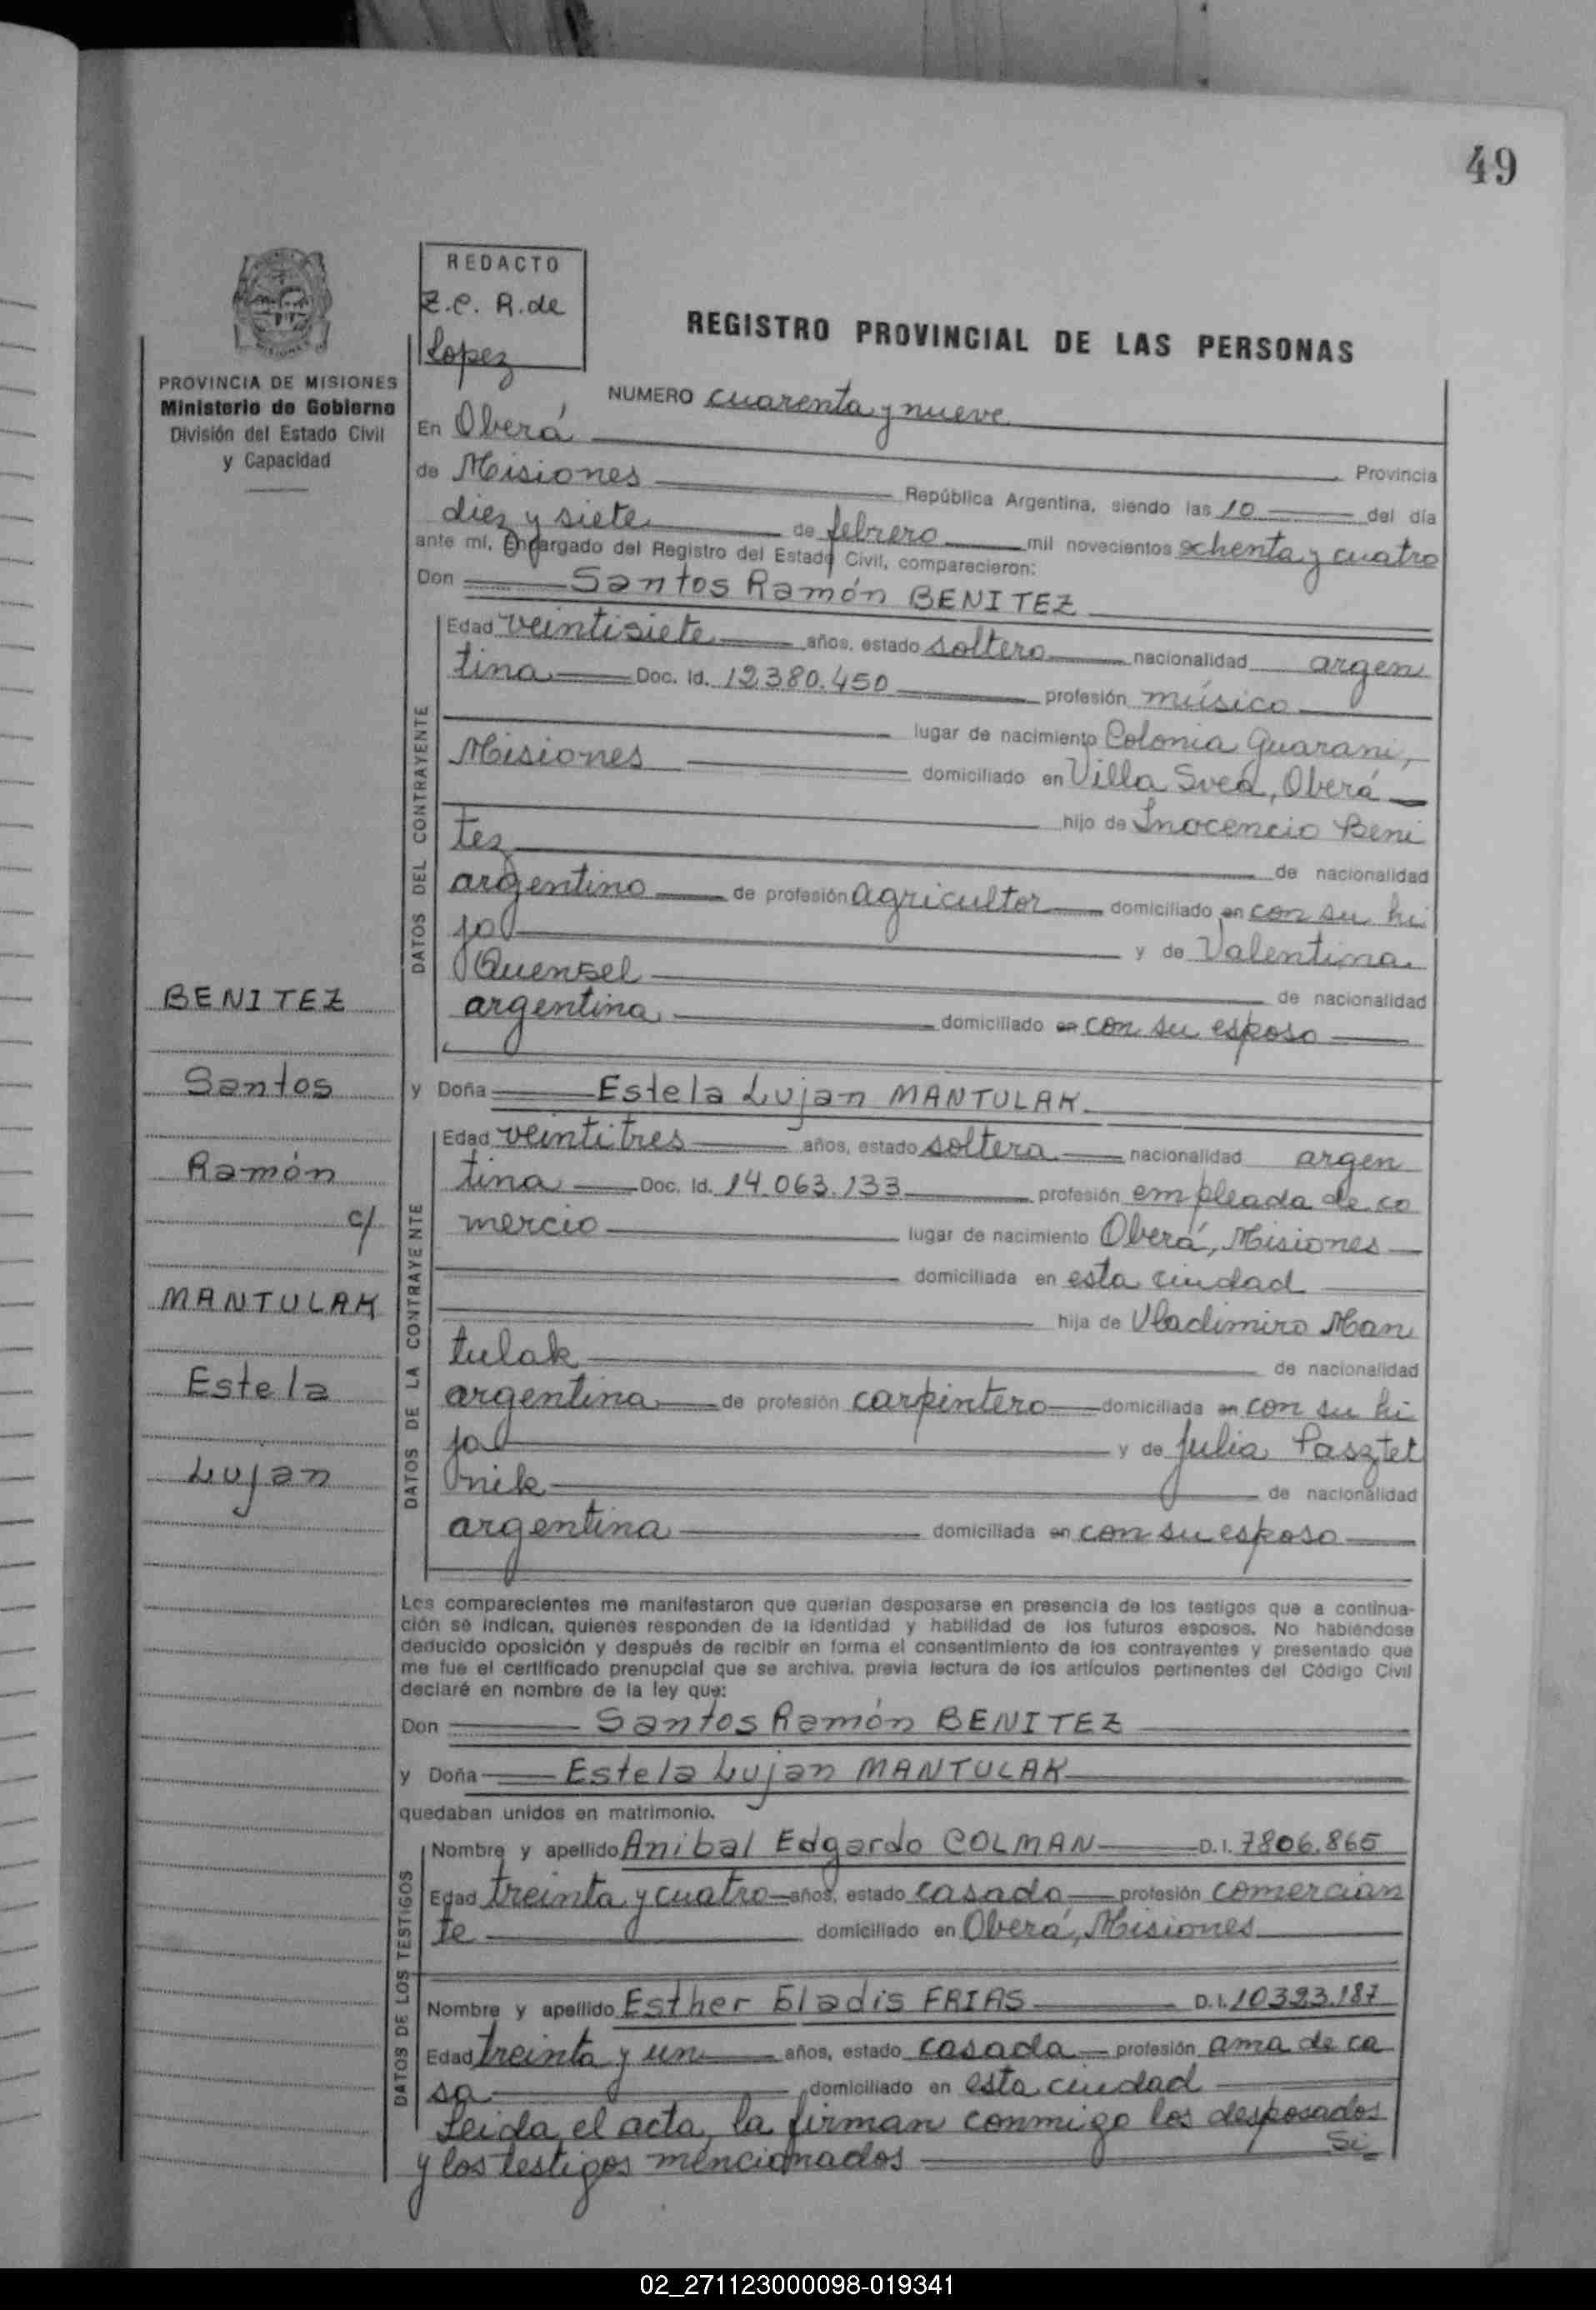 49
REDACTO
Z.C. R. de
Lopez
REGISTRO PROVINCIAL DE LAS PERSONAS
PROVINCIA DE MISIONES
Ministerio de Gobierno
División del Estado Civil
y Capacidad
NUMERO cuarenta y nueve
En Oberá Provincia
de Misiones República Argentina, siendo las 10 del día
diez y siete de febrero mil novecientos ochenta y cuatro
ante mí, Encargado del Registro del Estado Civil, comparecieron:
Don Santos Ramón BENITEZ
DATOS DEL CONTRAYENTE
Edad veintisiete años, estado soltero nacionalidad argen
tina Doc. Id. 12.380.450 profesión músico
lugar de nacimiento Colonia Guarani,
Misiones domiciliado en Villa Svea, Oberá
hijo de Inocencio Beni
tez de nacionalidad
argentino de profesión agricultor domiciliado en con su hi
jo y de Valentina
Quensel de nacionalidad
argentina domiciliado en con su esposo
y Doña Estela Lujan MANTULAK
DATOS DE LA CONTRAYENTE
Edad veintitres años, estado soltera nacionalidad argen
tina Doc. Id. 14.063.133 profesión empleada de co
mercio lugar de nacimiento Oberá, Misiones
domiciliada en esta ciudad
hija de Vladimiro Man
tulak de nacionalidad
argentina de profesión carpintero domiciliada en con su hi
ja y de Julia Pasztet
nik de nacionalidad
argentina domiciliada en con su esposo
BENITEZ
Santos
Ramón
c/
MANTULAK
Estela
Lujan
Los comparecientes me manifestaron que querían desposarse en presencia de los testigos que a continua-
ción se indican, quienes responden de la identidad y habilidad de los futuros esposos. No habiéndose
deducido oposición y después de recibir en forma el consentimiento de los contrayentes y presentado que
me fue el certificado prenupcial que se archiva, previa lectura de los artículos pertinentes del Código Civil
declaré en nombre de la ley que:
Don Santos Ramón BENITEZ
y Doña Estela Lujan MANTULAK
quedaban unidos en matrimonio.
DATOS DE LOS TESTIGOS
Nombre y apellido Anibal Edgardo COLMAN D.I. 7806.865
Edad treinta y cuatro años, estado casado profesión comercian
te domiciliado en Oberá, Misiones
Nombre y apellido Esther Eladis FRIAS D.I. 10323.187
Edad treinta y un años, estado casada profesión ama de ca
sa domiciliado en esta ciudad
Leida el acta, la firman conmigo los desposados
y los testigos mencionados Si
02_271123000098-019341